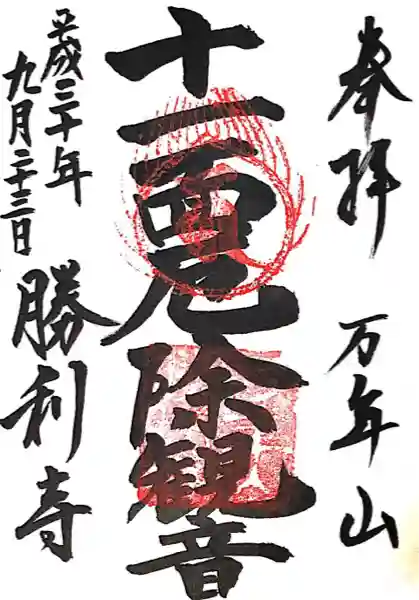 奉拝 万年山
十一面厄除観音
平成三十年
九月二十三日
勝利寺